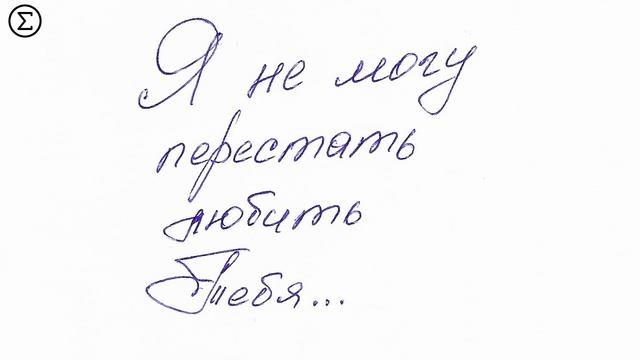 Σ
Я не могу
перестать
любить
Тебя...